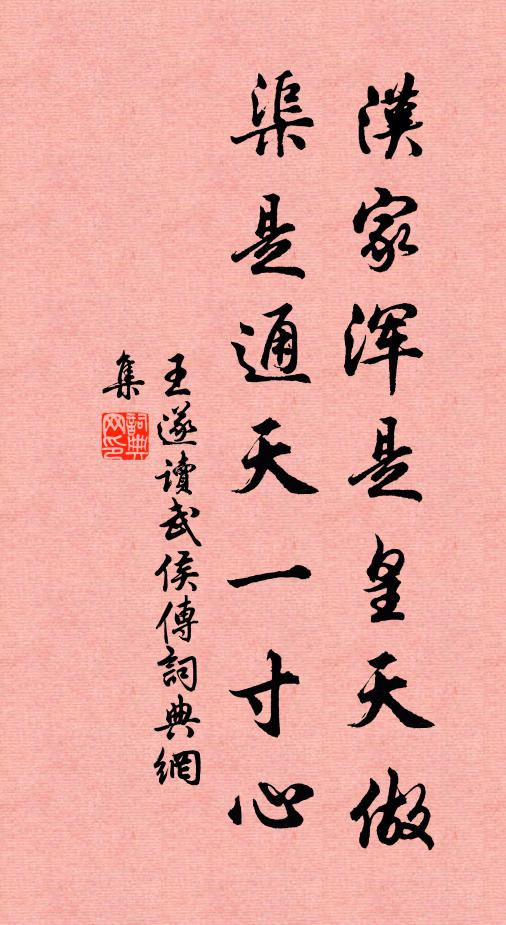 漢家渾是皇天做
渠是通天一寸心
王遂讀武侯傳詞典網
集
詞典
网印